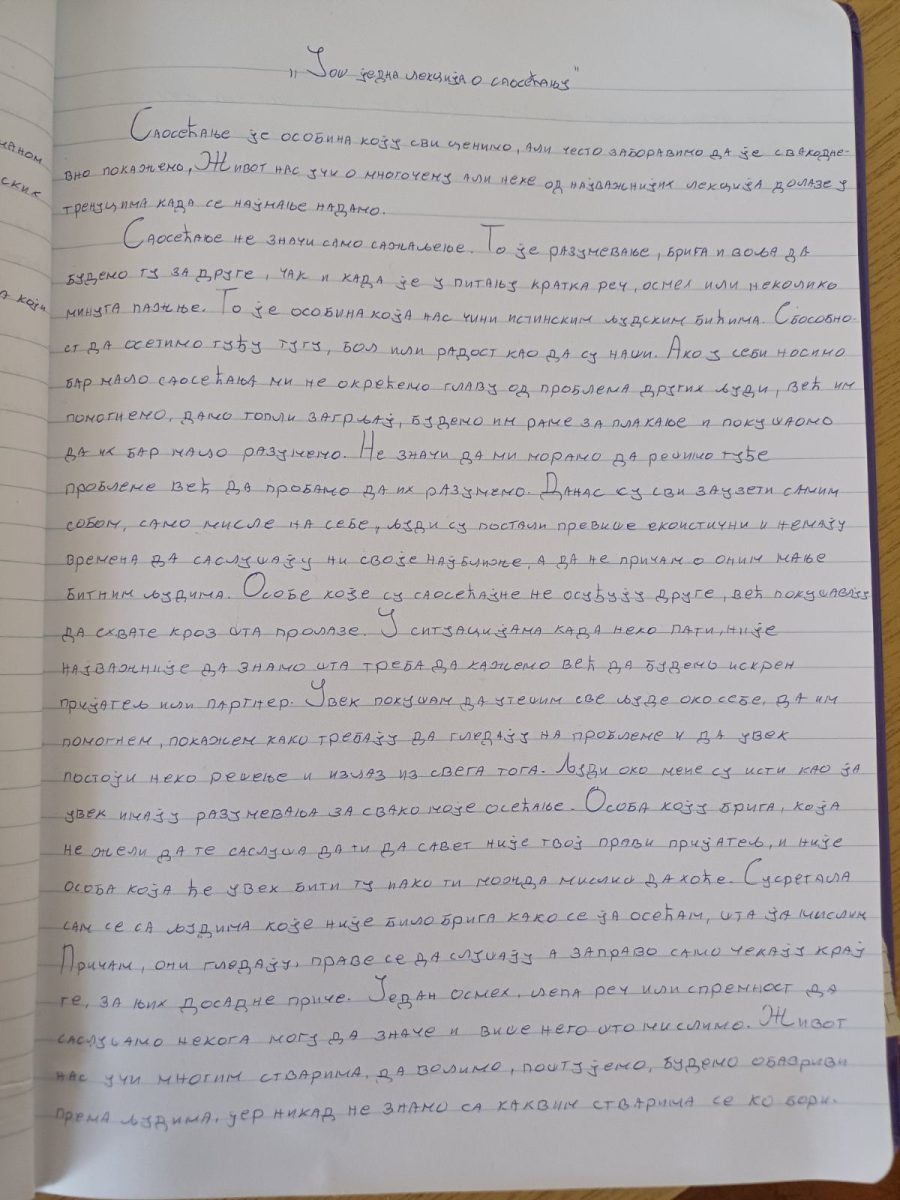 маном
ских
а који
„Још једна лекција о саосећању"
Саосећање је особина коју сви ценимо, али често заборавимо да је свакодне-
вно покажемо, Живот нас учи о многочему али неке од најважнијих лекција долазе у
тренуцима када се најмање надамо.
Саосећање не значи само сажаљење. То је разумевање, брига и воља да
будемо ту за друге, чак и када је у питању кратка реч, осмех или неколико
минута пажње. То је особина која нас чини истинским људским бићима. Сбособно-
ст да осетимо туђу тугу, бол или радост као да су наши. Ако у себи носимо
бар мало саосећања ми не окрећемо главу од проблема других људи, већ им
помогнемо, дамо топли загрљај, будемо им раме за плакање и покушаомо
да их бар мало разумемо. Не значи да ми морамо да решимо туђе
проблеме већ да пробамо да их разумемо. Данас су сви заузети самим
собом, само мисле на себе, људи су постали превише екоистични и немају
времена да саслушају ни своје најближе, а да не причам о оним мање
битним људима. Особе које су саосећајне не осуђују друге, већ покушавају
да схвате кроз шта пролазе. У ситуацијама када неко пати, није
најважније да знамо шта треба да кажемо већ да будемо искрен
пријатељ или партнер. Увек покушам да утешим све људе око себе, да им
помогнем, покажем како требају да гледају на проблеме и да увек
постоји неко решење и излаз из свега тога. Људи око мене су исти као ја
увек имају разумевања за свако моје осећање. Особа коју брига, која
не жели да те саслуша да ти да савет није твој прави пријатељ, и није
особа која ће увек бити ту иако ти можда мислиш да хоће. Сусретала
сам се са људима које није било брига како се ја осећам, шта ја мислим
Причам, они гледају, праве се да слушају а заправо само чекају крај
те, за њих досадне приче. Један осмех, лепа реч или спремност да
саслушамо некога могу да значе и више него што мислимо. Живот
нас учи многим стварима, да волимо, поштујемо, будемо обазриви
према људима, јер никад не знамо са каквим стварима се ко бори.